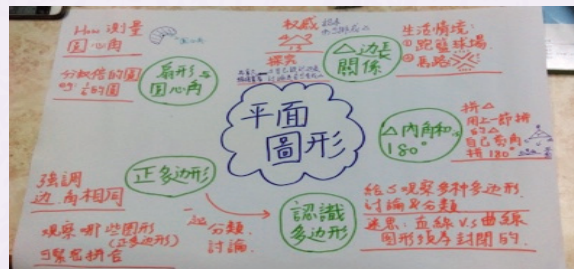 How 測量
圓心角
分幾倍的圓
扇形與
圓心角
權威
探究
△边長
關係
生活情境:
① 跑籃球場
② 馬路
平面
圖形
△內角和
180°
拼△
用上一節拼
的△
自己剪角
拼 180°
正多边形
強調
边、角相同
觀察哪些图形
(正多边形)
可緊密拼合
分類
討論
認識
多边形
給S觀察多种多边形
討論&分類
迷思: 直線 V.S 曲線
图形須為封閉的.